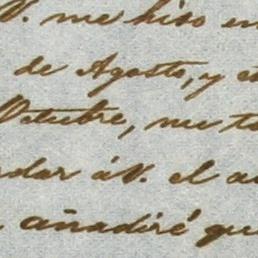 V. me hizo en
de Agosto, y e
Octubre, me to
dar á V. el a
añadiré que